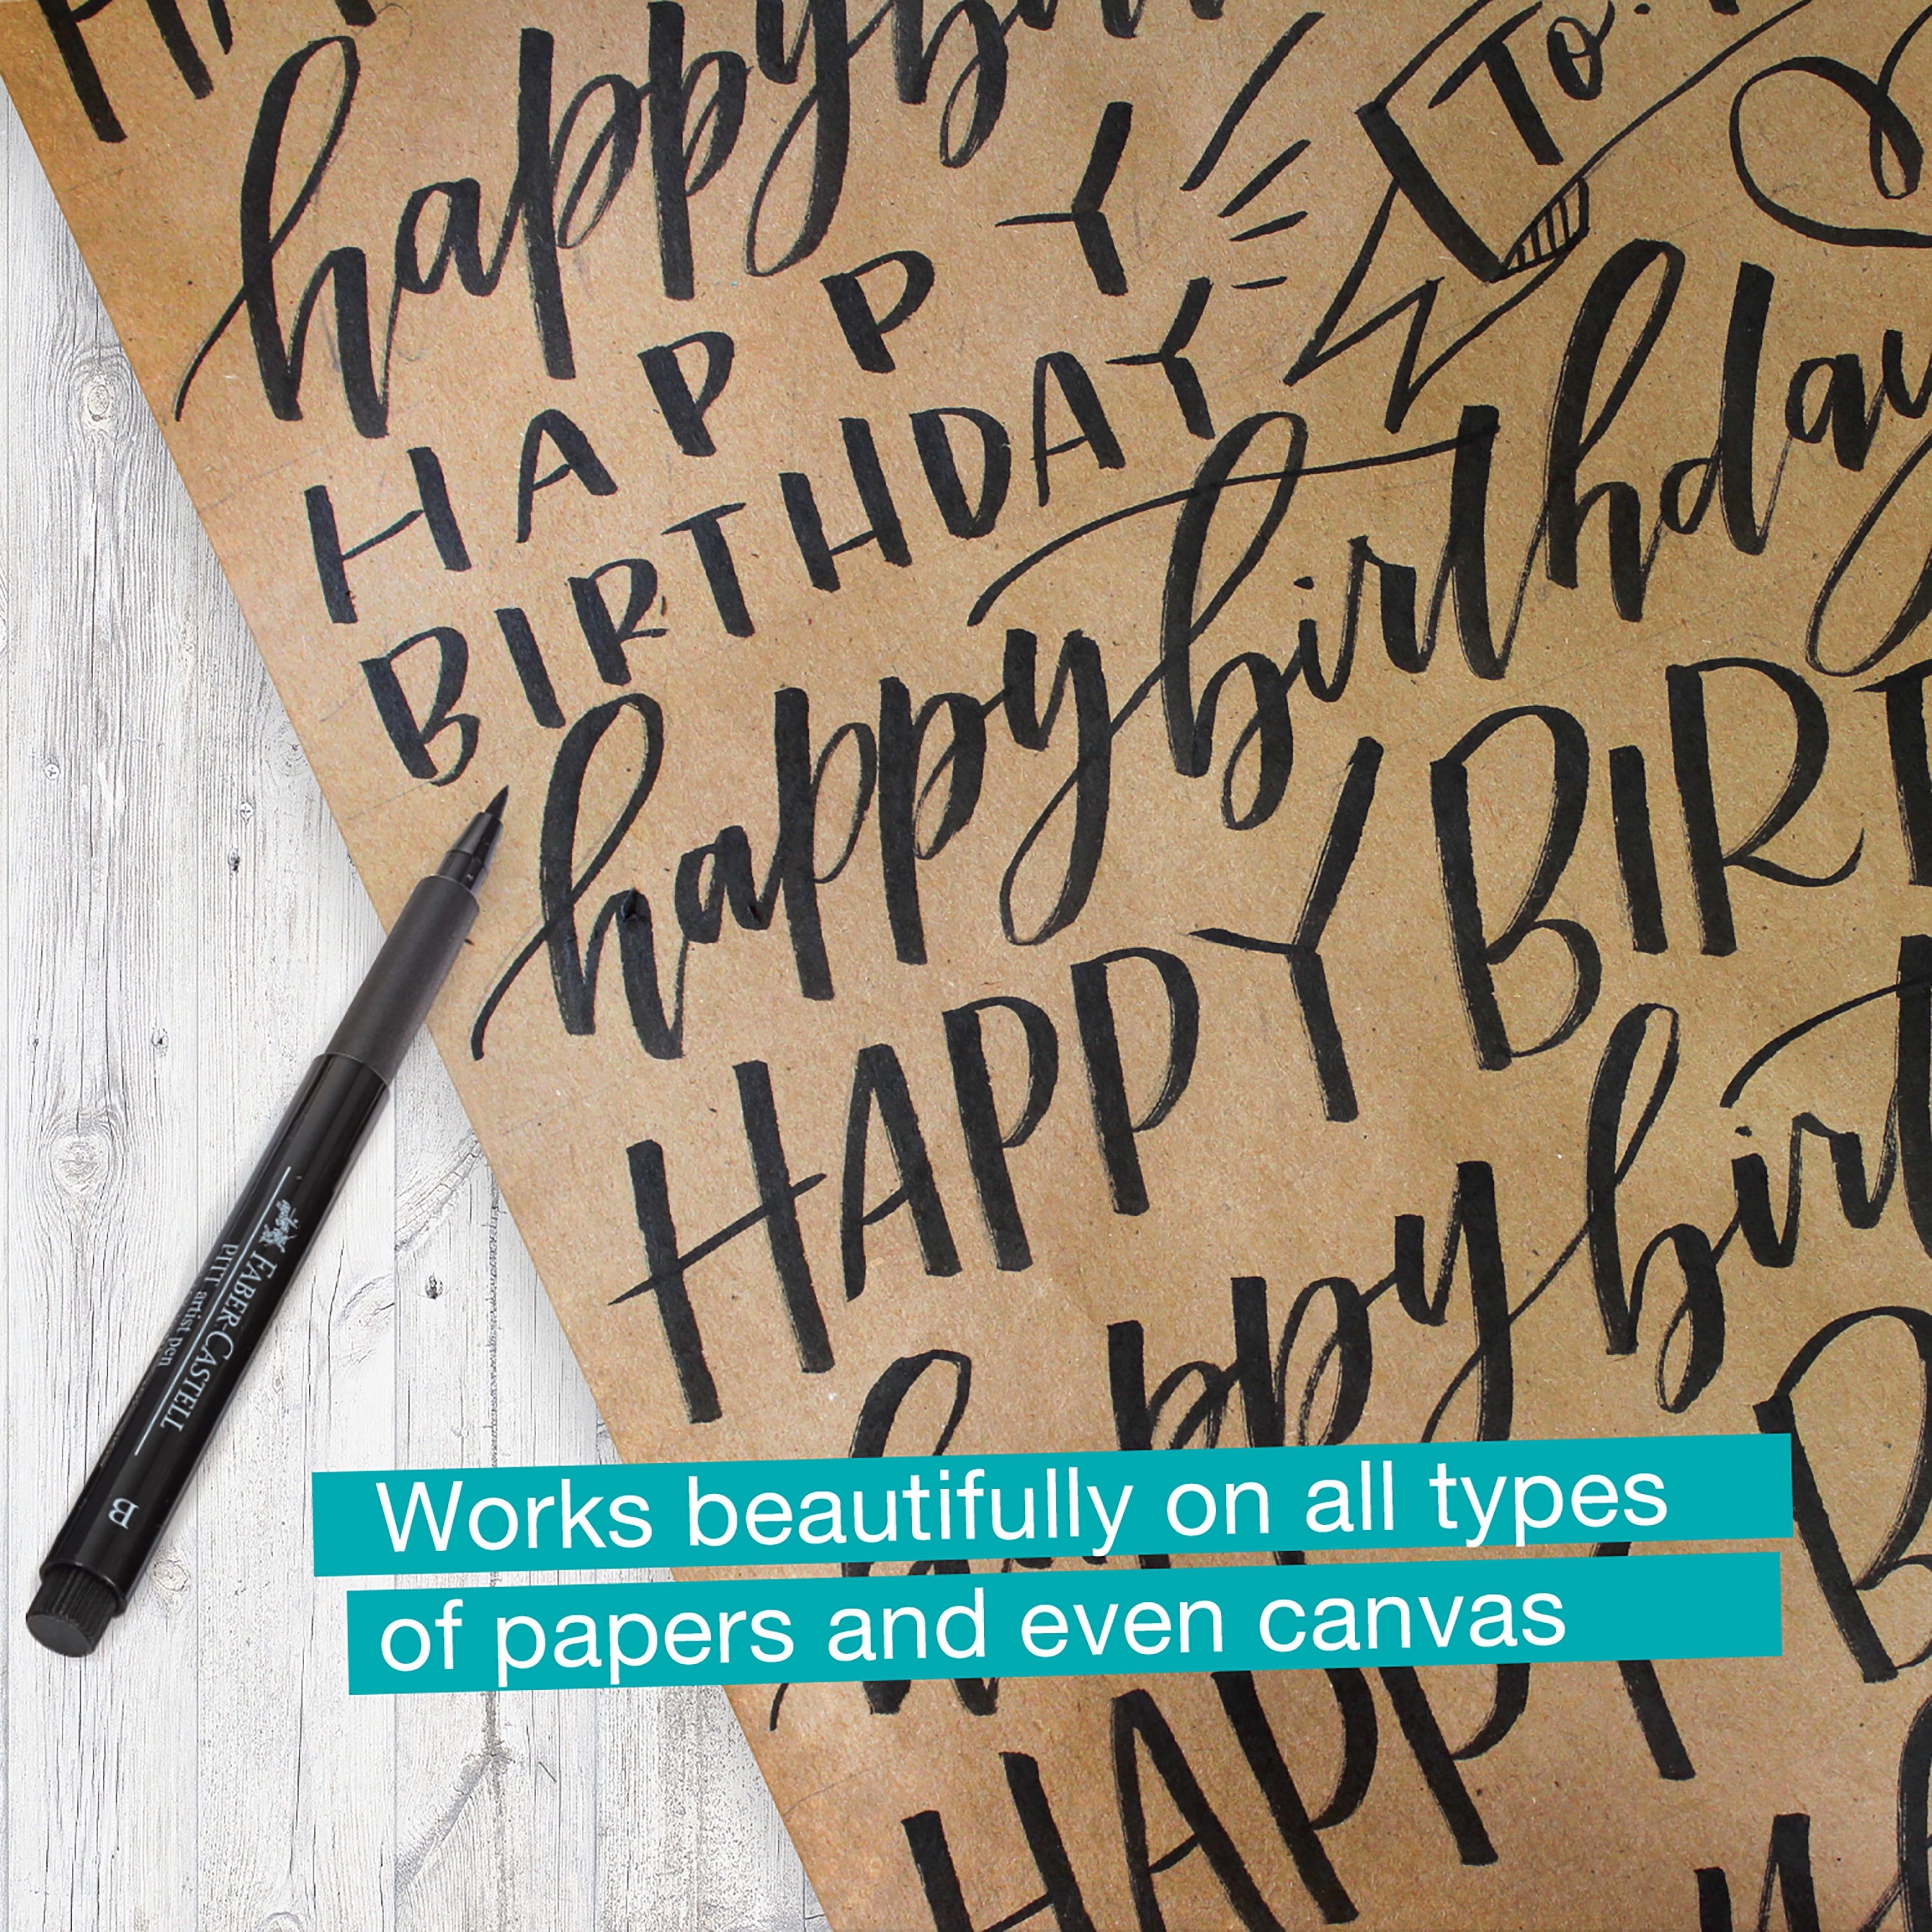 happy
To:
H A P P Y
BIRTHDAY
happy birthday
HAPPY BIRT
happy birt
HAPPY B
FABER-CASTELL
PITT artist pen
B
Works beautifully on all types
of papers and even canvas